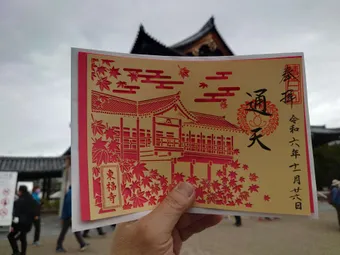 奉拝
令和六年十一月廿六日
通天
東福寺